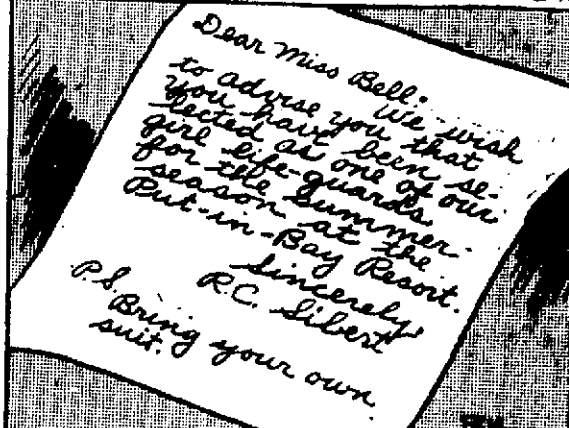 Dear Miss Bell:
We wish
to advise you that
you have been se-
lected as one of our
girl life-guards
for the summer
season at the
Put-in-Bay Resort.
Sincerely,
R.C. Sibert
P.S.
Bring your own
suit.